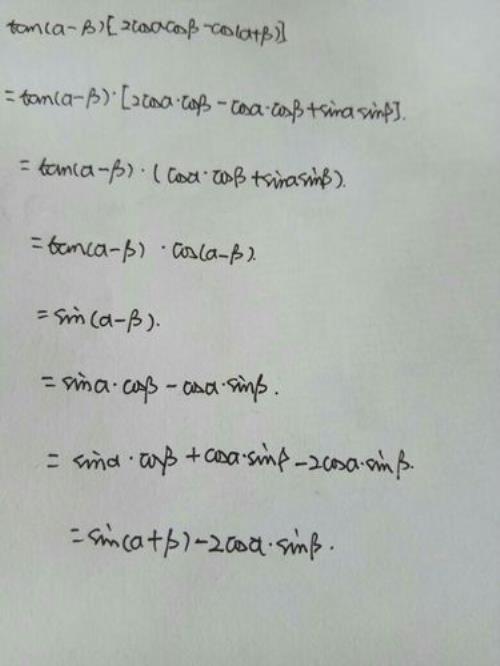 tan(α-β)[2cosαcosβ-cos(α+β)]
=tan(α-β)·[2cosα·cosβ-cosα·cosβ+sinαsinβ].
=tan(α-β)·(cosα·cosβ+sinαsinβ).
=tan(α-β)·cos(α-β).
=sin(α-β).
=sinα·cosβ-cosα·sinβ.
=sinα·cosβ+cosα·sinβ-2cosα·sinβ.
=sin(α+β)-2cosα·sinβ.